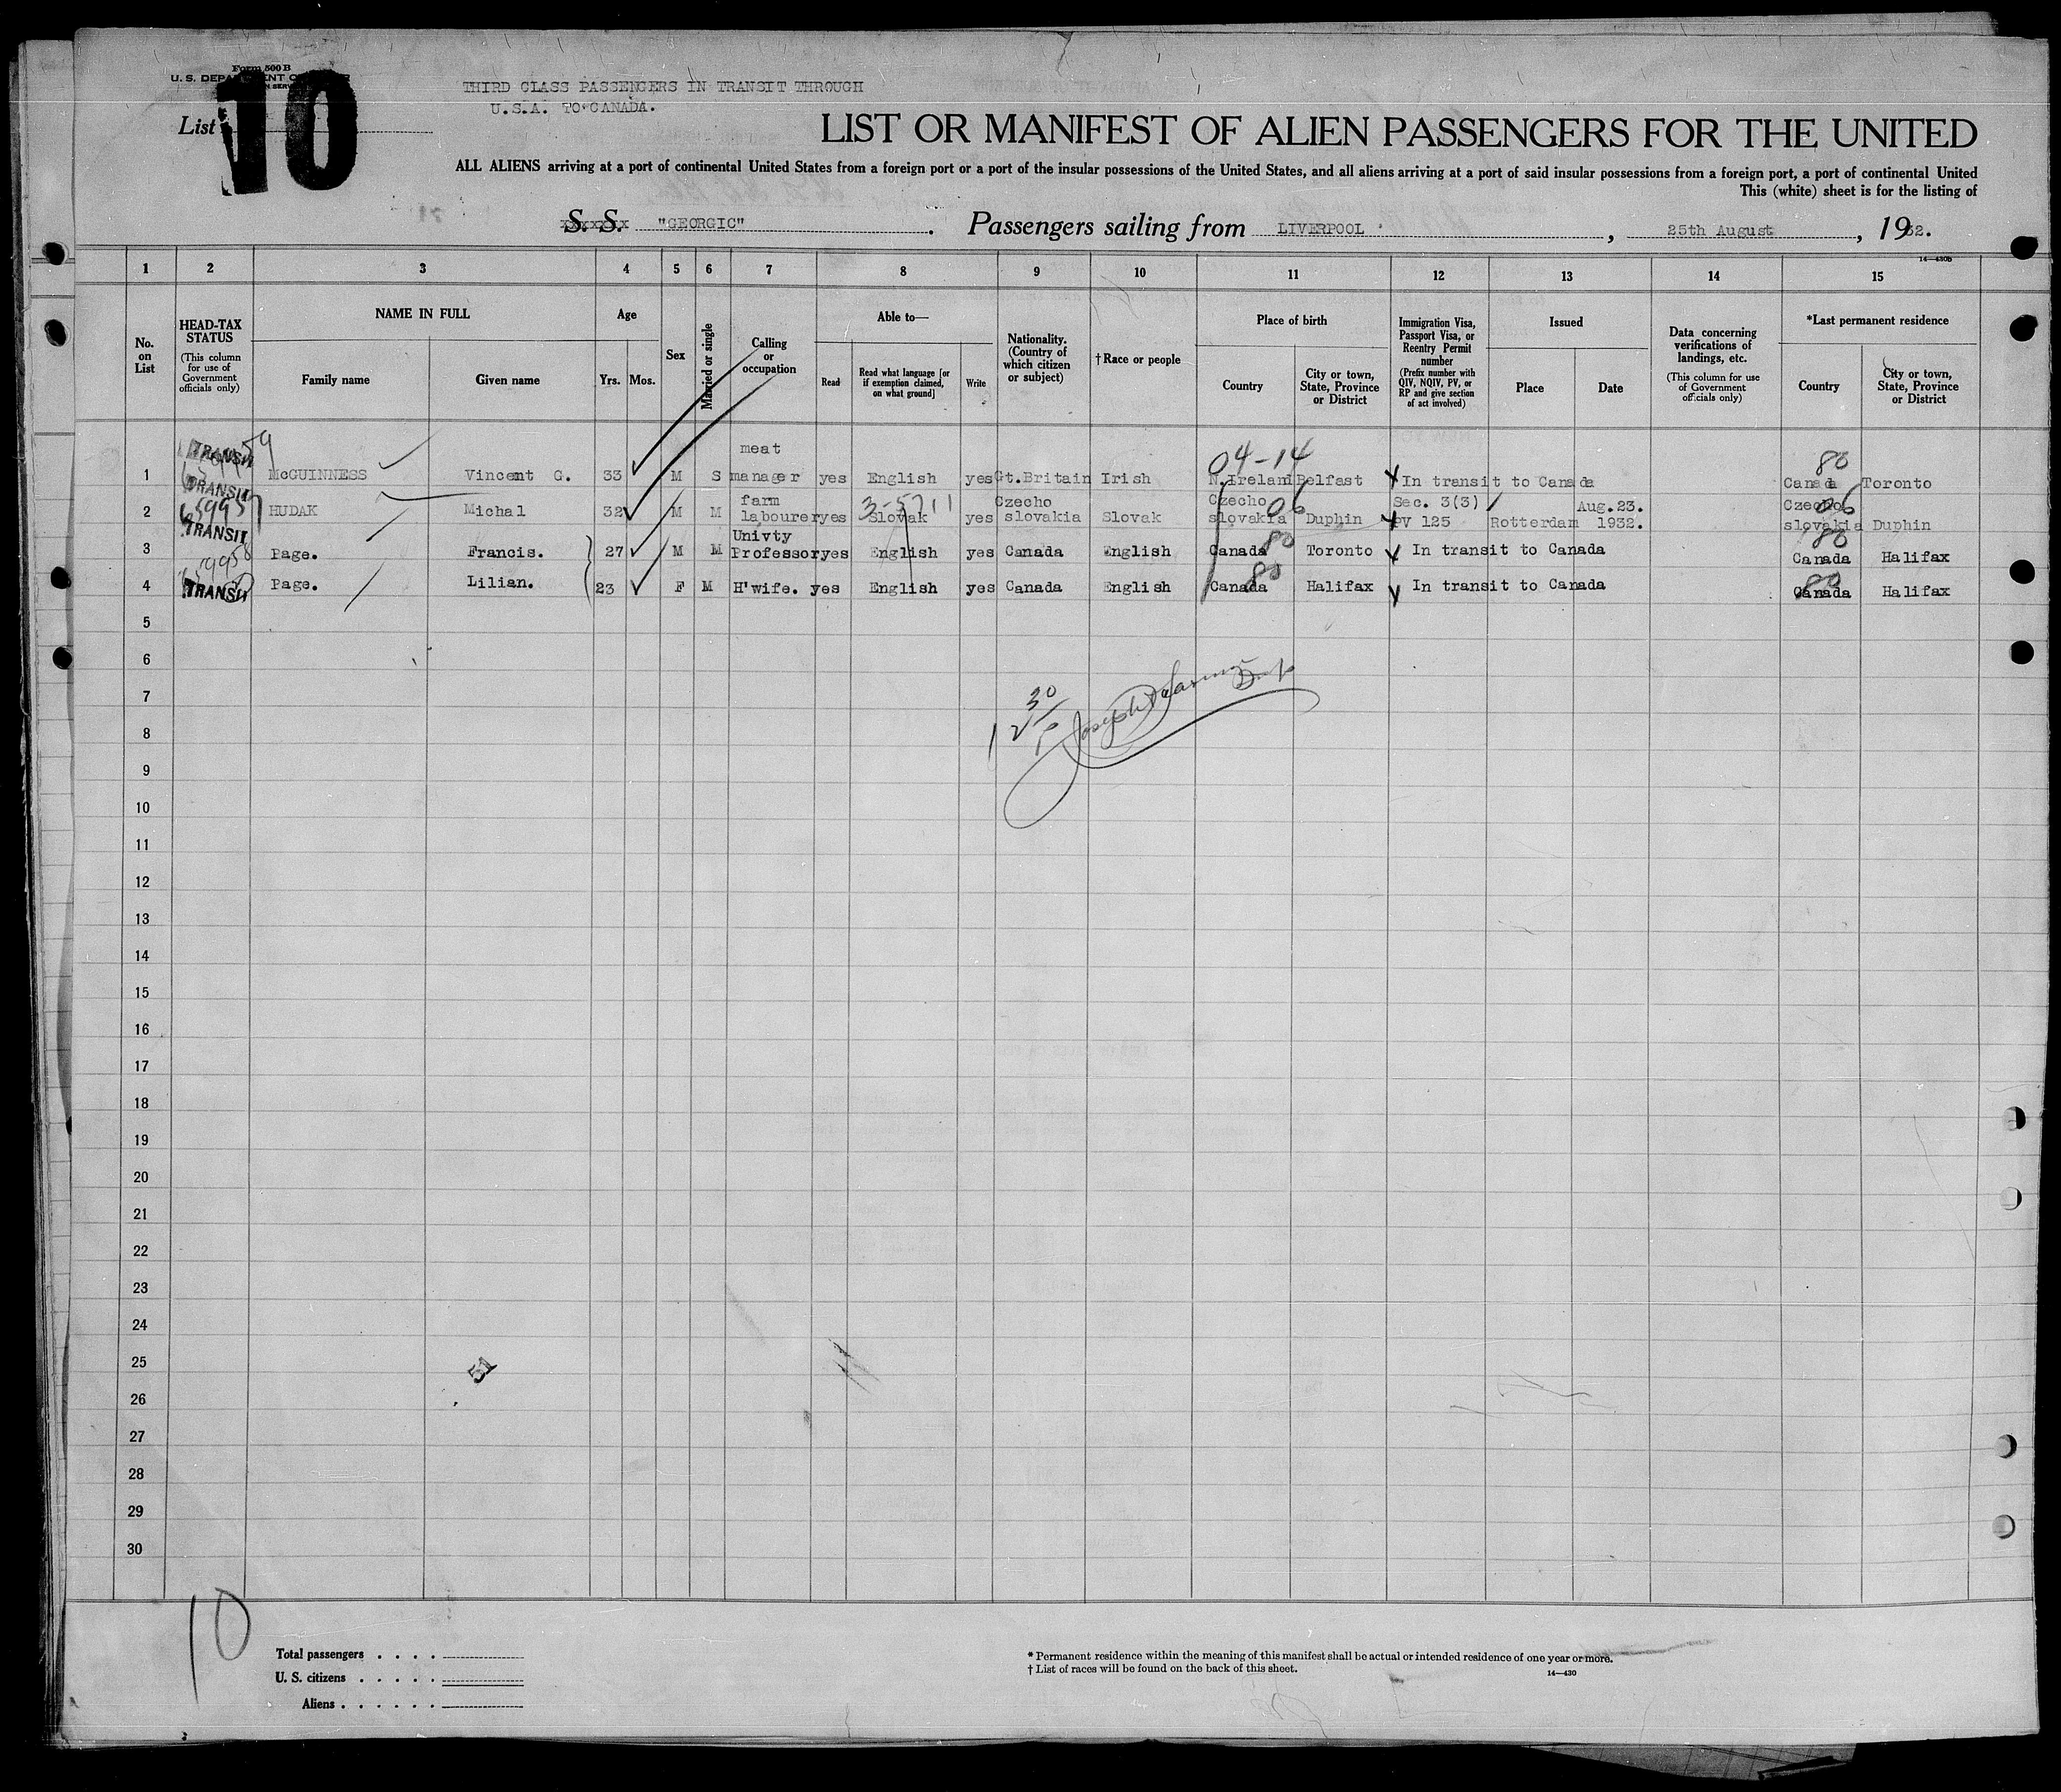 Form 500 B
U. S. DEPARTMENT O
THIRD CLASS PASSENGERS IN TRANSIT THROUGH
U.S.A. TO CANADA.
List 10
LIST OR MANIFEST OF ALIEN PASSENGERS FOR THE UNITED
ALL ALIENS arriving at a port of continental United States from a foreign port or a port of the insular possessions of the United States, and all aliens arriving at a port of said insular possessions from a foreign port, a port of continental United
This (white) sheet is for the listing of
S. S. "GEORGIC". Passengers sailing from LIVERPOOL, 25th August, 1932.
14—430B
1 2 3 4 5 6 7 8 9 10 11 12 13 14 15
No. on List
HEAD-TAX STATUS (This column for use of Government officials only)
NAME IN FULL
Family name Given name
Age
Yrs. Mos.
Sex
Married or single
Calling or occupation
Able to—
Read Read what language [or if exemption claimed, on what ground] Write
Nationality. (Country of which citizen or subject)
†Race or people
Place of birth
Country City or town, State, Province or District
Immigration Visa, Passport Visa, or Reentry Permit number (Prefix number with QIV, NQIV, PV, or RP and give section of act involved)
Issued
Place Date
Data concerning verifications of landings, etc. (This column for use of Government officials only)
*Last permanent residence
Country City or town, State, Province or District
TRANSIT meat 04-14 80
1 McGUINNESS Vincent G. 33 M S manager yes English yes Gt.Britain Irish N.Ireland Belfast In transit to Canada Canada Toronto
TRANSIT farm 3-5711 Czecho Czecho 06 Sec. 3(3) Aug.23. Czecho 06
2 659957 HUDAK Michal 32 M M labourer yes Slovak yes slovakia Slovak slovakia Duphin PV 125 Rotterdam 1932. slovakia Duphin
TRANSIT Univty 80 80
3 Page. Francis. 27 M M Professor yes English yes Canada English Canada Toronto In transit to Canada Canada Halifax
659958 80 80
4 TRANSIT Page. Lilian. 23 F M H'wife. yes English yes Canada English Canada Halifax In transit to Canada Canada Halifax
5
6
7
8
9
10
11
12
13
14
15
16
17
18
19
20
21
22
23
24
25
26
27
28
29
30
12 30 P
51
10
Total passengers . . . .
U. S. citizens . . . . .
Aliens . . . . . .
* Permanent residence within the meaning of this manifest shall be actual or intended residence of one year or more.
† List of races will be found on the back of this sheet.
14—430